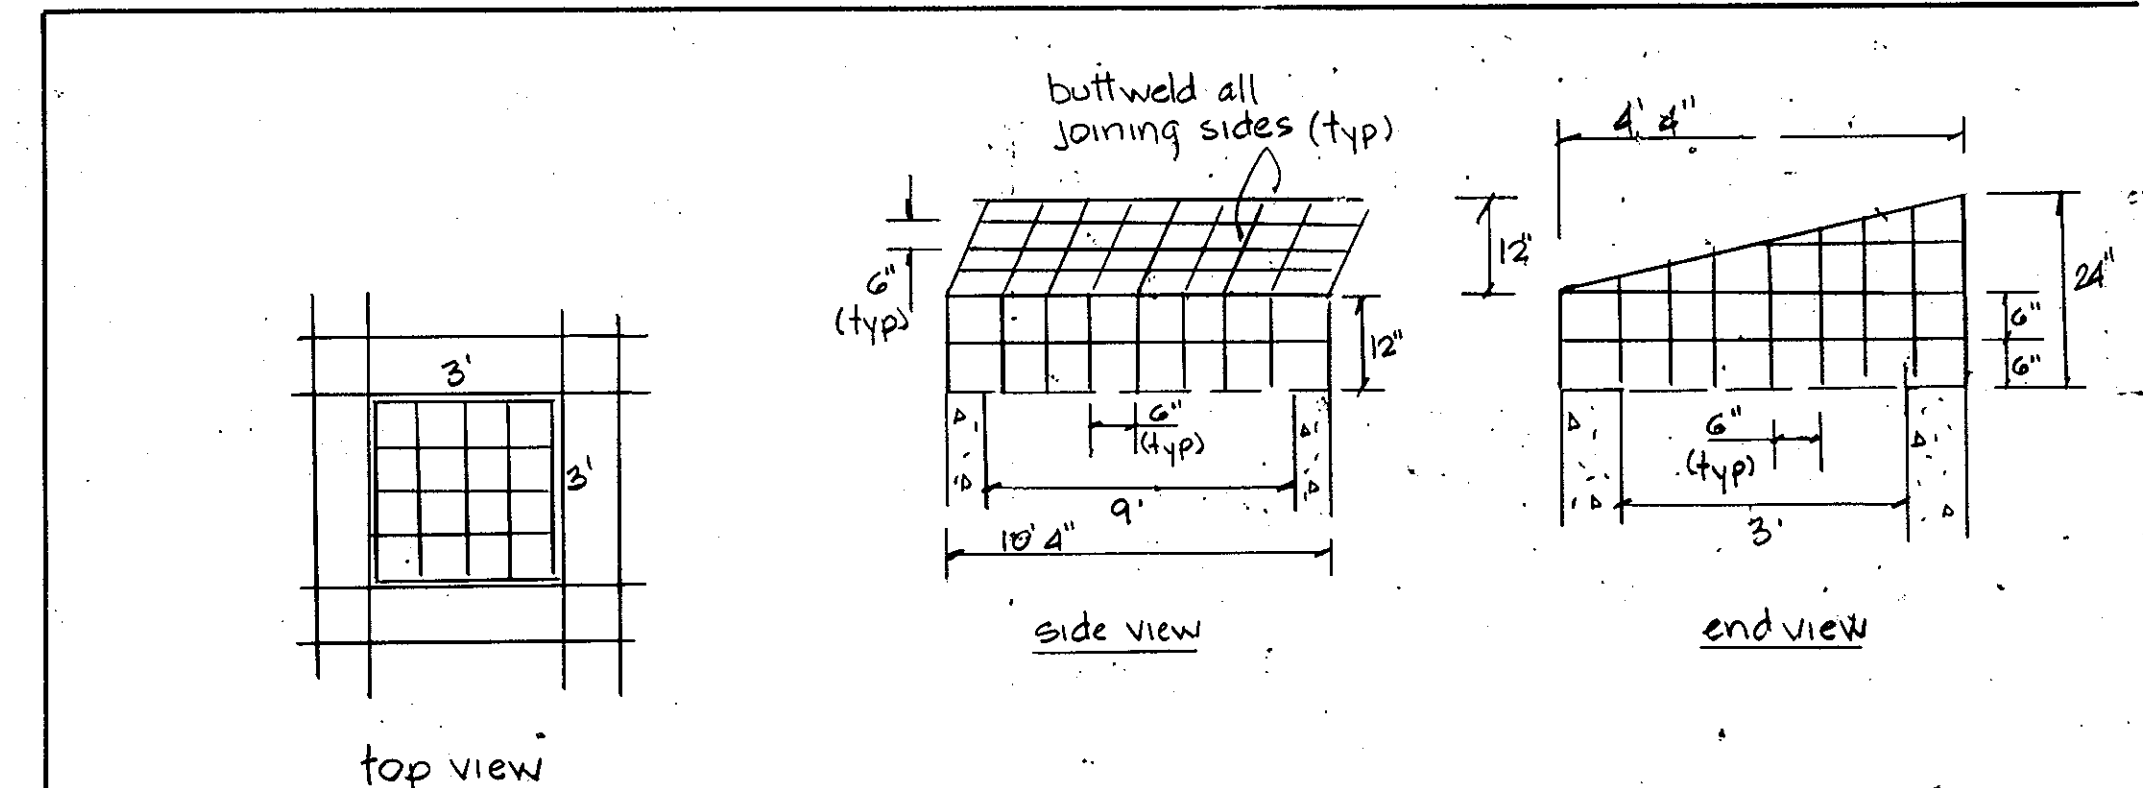 3'
3'
top view
buttweld all
joining sides (typ)
6"
(typ)
12"
6"
(typ)
9'
10' 4"
side view
4' 4"
12"
24"
6"
6"
6"
(typ)
3'
end view